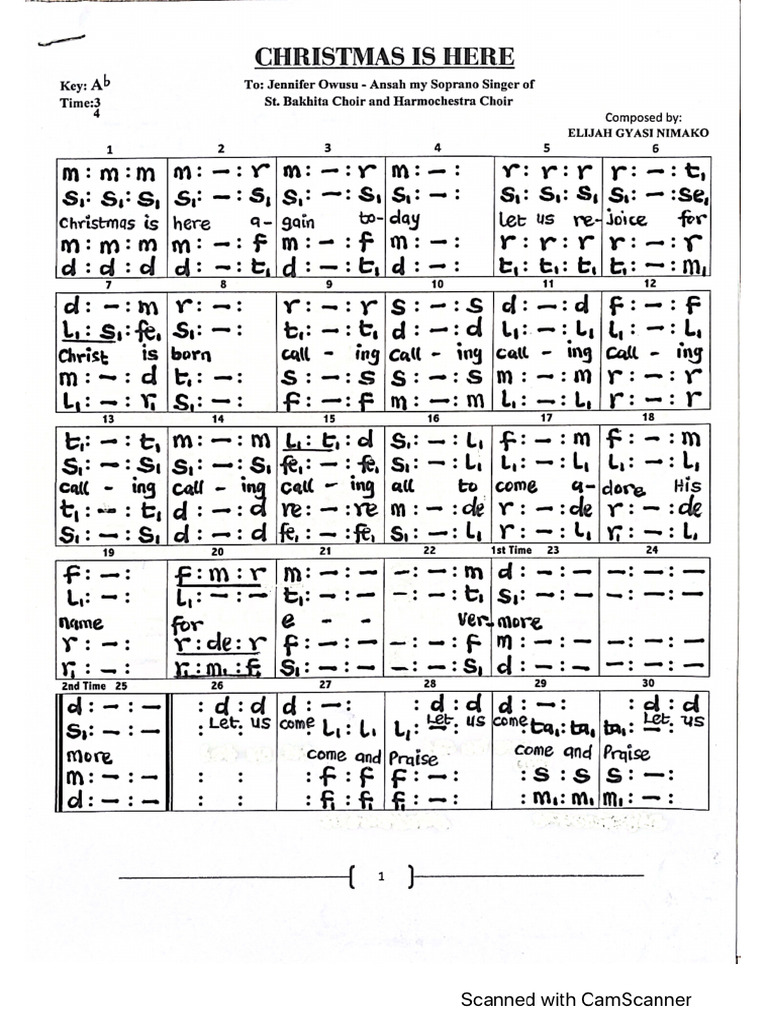 CHRISTMAS IS HERE
Key: Ab
To: Jennifer Owusu - Ansah my Soprano Singer of
Time:3
4
St. Bakhita Choir and Harmochestra Choir
Composed by:
ELIJAH GYASI NIMAKO
1 2 3 4 5 6
m : m : m | m : – : r | m : – : r | m : – : | r : r : r | r : – : t₁
s₁ : s₁ : s₁ | s₁ : – : s₁ | s₁ : – : s₁ | s₁ : – : | s₁ : s₁ : s₁ | s₁ : – : se₁
Christmas is here a- gain to-day let us re-joice for
m : m : m | m : – : f | m : – : f | m : – : | r : r : r | r : – : r
d : d : d | d : – : t₁ | d : – : t₁ | d : – : | t₁ : t₁ : t₁ | t₁ : – : m₁
7 8 9 10 11 12
d : – : m | r : – : | r : – : r | s : – : s | d : – : d | f : – : f
l₁ : s₁ : fe₁ | s₁ : – : | t₁ : – : t₁ | d : – : d | l₁ : – : l₁ | l₁ : – : l₁
Christ is born call - ing call - ing call - ing call - ing
m : – : d | t₁ : – : | s : – : s | s : – : s | m : – : m | r : – : r
l₁ : – : r₁ | s₁ : – : | f : – : f | m : – : m | l₁ : – : l₁ | r : – : r
13 14 15 16 17 18
t₁ : – : t₁ | m : – : m | l₁ : t₁ : d | s₁ : – : l₁ | f : – : m | f : – : m
s₁ : – : s₁ | s₁ : – : s₁ | fe₁ : – : fe₁ | s₁ : – : l₁ | l₁ : – : l₁ | l₁ : – : l₁
call - ing call - ing call - ing all to come a- dore His
t₁ : – : t₁ | d : – : d | re : – : re | m : – : de | r : – : de | r : – : de
s₁ : – : s₁ | d : – : d | fe₁ : – : fe₁ | s₁ : – : l₁ | r : – : l₁ | r₁ : – : l₁
19 20 21 22 1st Time 23 24
f : – : | f : m : r | m : – : – | – : – : m | d : – : – | – : – : –
l₁ : – : | l₁ : – : – | t₁ : – : – | – : – : t₁ | s₁ : – : – | – : – : –
name for e - - ver-more
r : – : | r : de : r | f : – : – | – : – : f | m : – : – | – : – : –
r₁ : – : | r₁ : m₁ : f₁ | s₁ : – : – | – : – : s₁ | d : – : – | – : – : –
2nd Time 25 26 27 28 29 30
d : – : – | : d : d | d : – : | : d : d | d : – : | : d : d
Let us come Let us come Let us
s₁ : – : – | : : | : l₁ : l₁ | l₁ : – : | : ta₁ : ta₁ | ta₁ : – :
more come and Praise come and Praise
m : – : – | : : | : f : f | f : – : | : s : s | s : – :
d : – : – | : : | : f₁ : f₁ | f₁ : – : | : m₁ : m₁ | m₁ : – :
1
Scanned with CamScanner